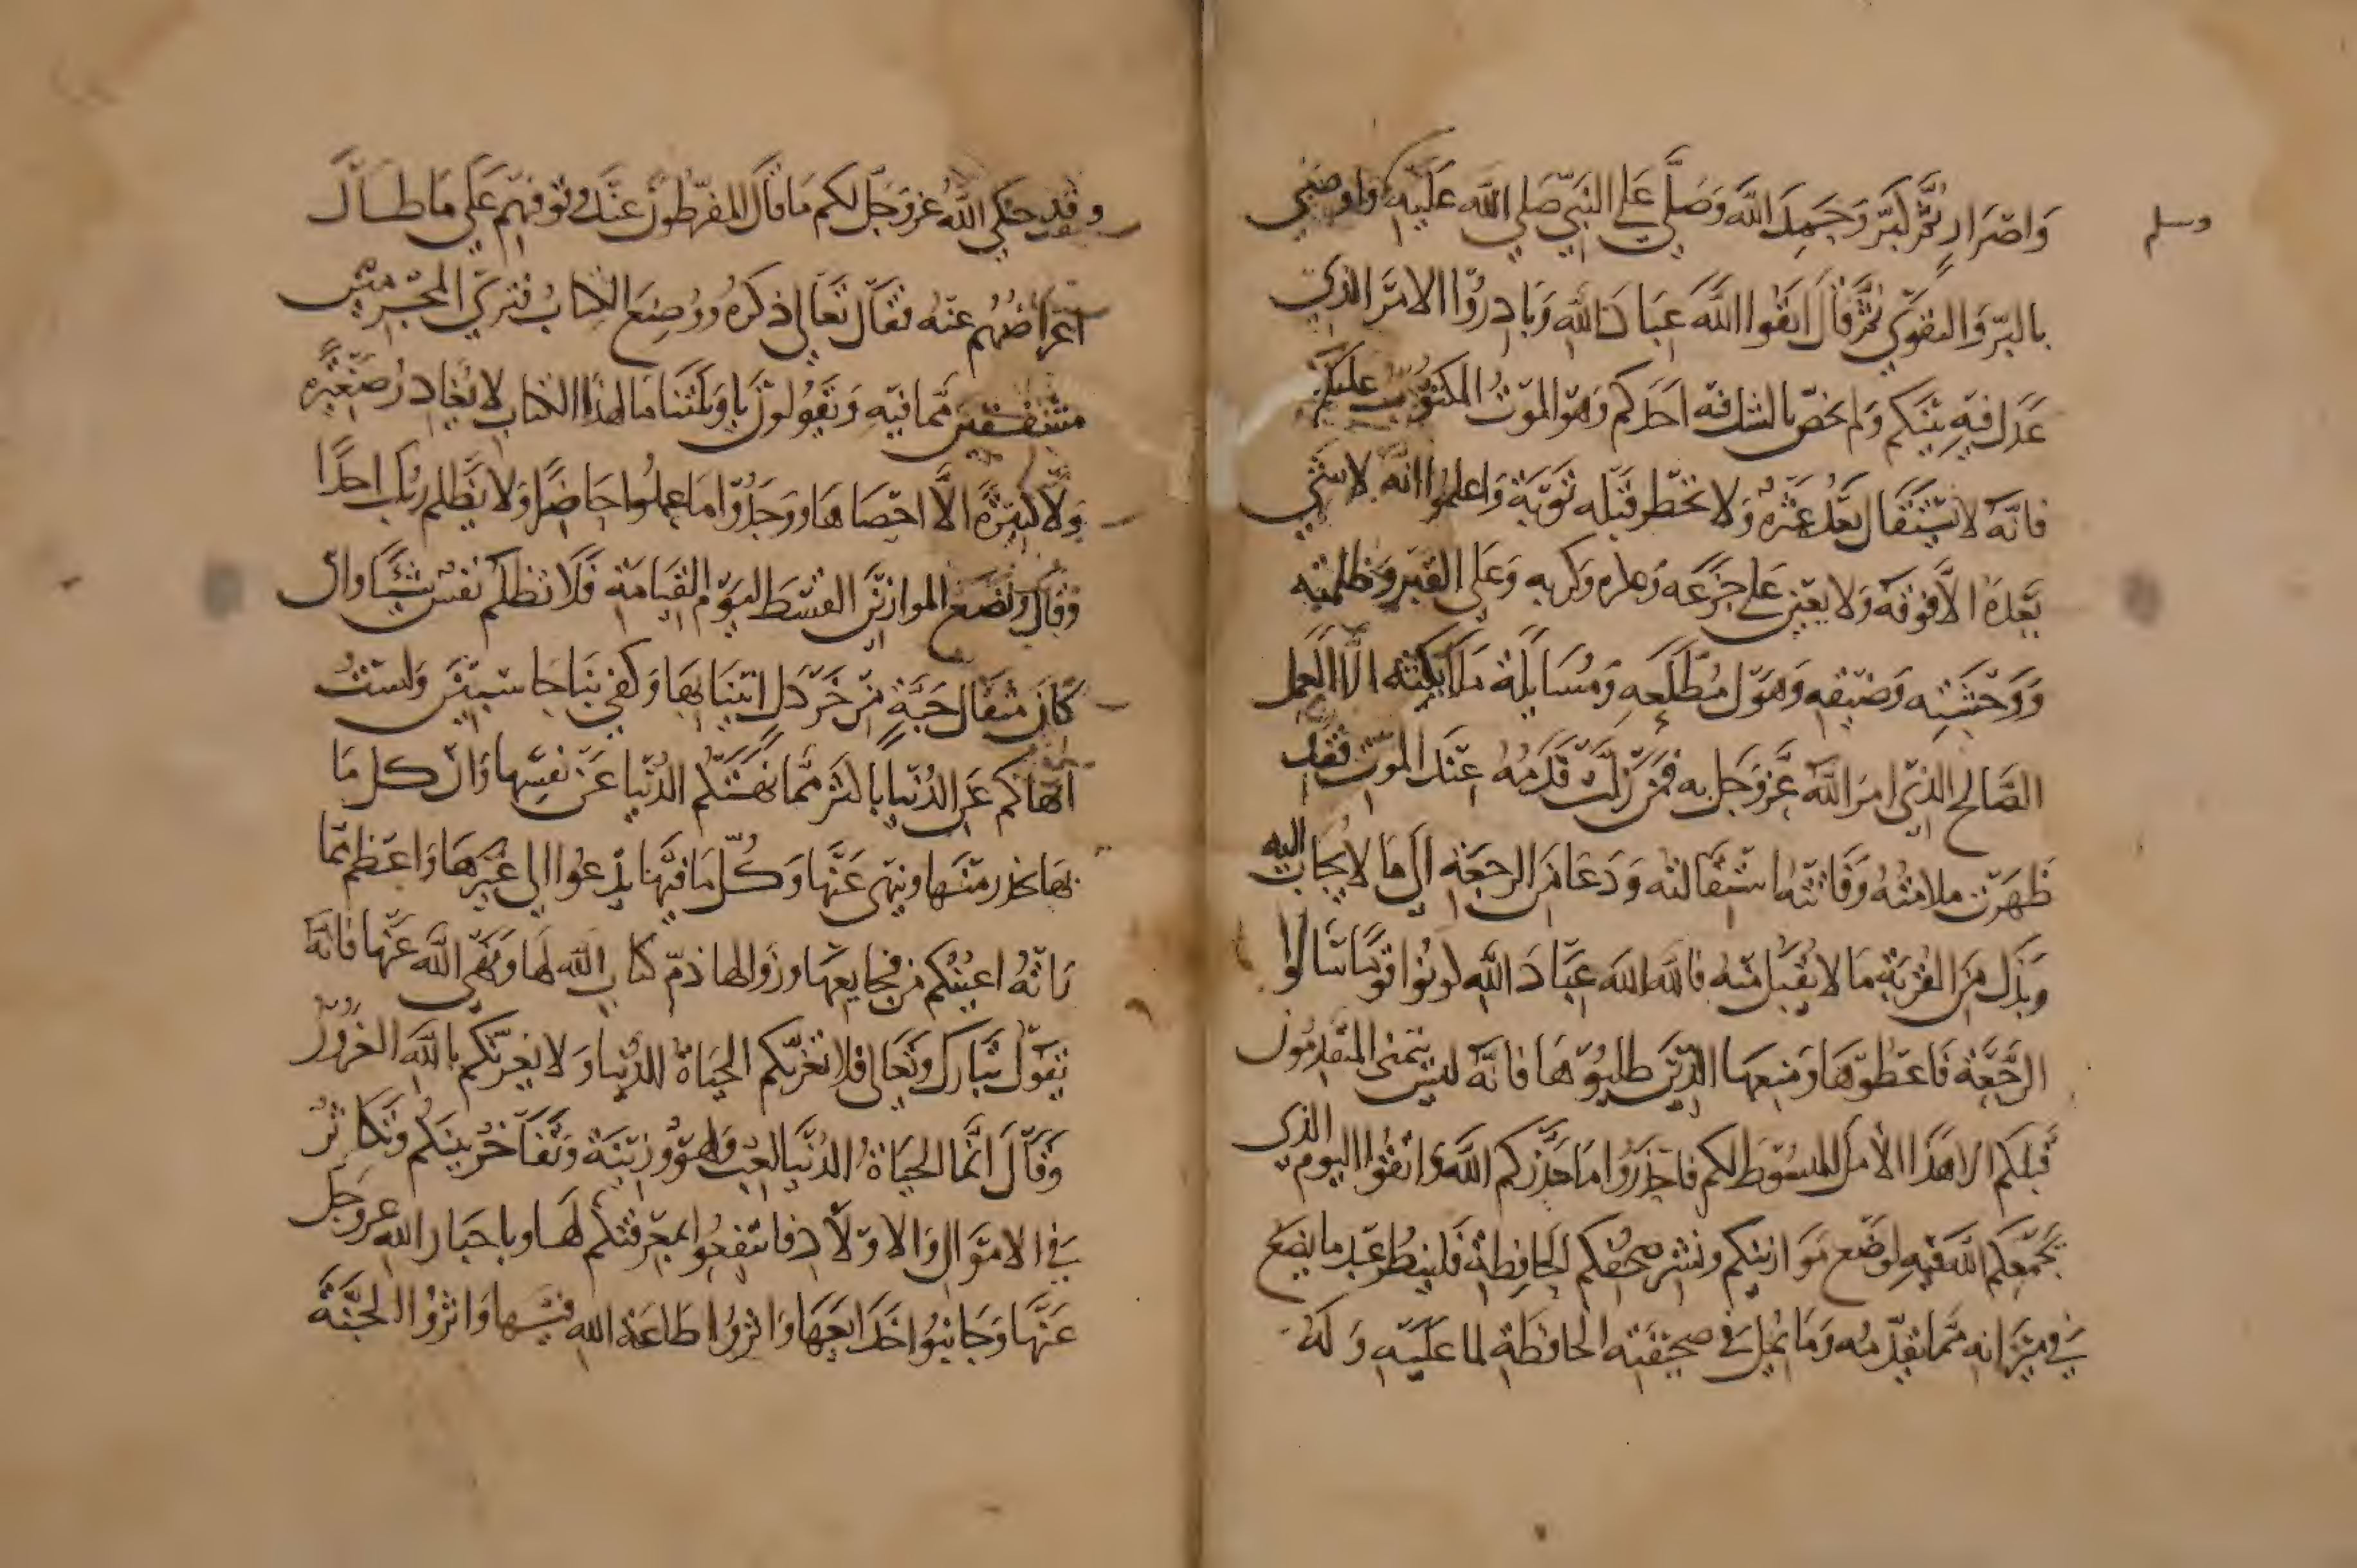 وسلم
وَاصْرَارٍ ثُمَّ كَبَّرَ وَحَمِدَ اللَّهَ وَصَلَّى عَلَى النَّبِيِّ صَلى اللَّه عَلَيْهِ وَاوصَى
بالبرّ وَالتقوَى ثمَّ قالَ اتقوا اللَّهَ عِبَادَ اللَّهِ وَبَادِرُوا الامْرَ الذي
عَدَل فيهِ بَيْنَكم وَلم يخصّ بالشك فيه احَدكم وَهوَ الموْتُ المكتوُبُ عليكم
فانَّه لا يُسْتَقَال بَعْدَ عَثْرةٍ وَلا تخطر قبْله تَوْبَة وَاعلمُوا انَّه لا شَيْ
بَعْدَهُ الَّا فوْقه وَلا يعين عَلى جَزَعه وَعلزه وَكربه وَعَلى القبْر وَظلمته
وَوَحْشَتِه وَضيقِهِ وَهَوْل مُطَّلَعِهِ وَمُسَايَلَة مَلَايكتِه الَّا العَمل
الصَّالح الذِي امَرَ اللَّه عَزَّ وَجَل به فمَنْ زَلَّتْ قَدَمُهُ عِنْدَ الموْتِ فقد
ظهَرَت ملامَتُهُ وَفَاتَتْهُ اسْتِقَالته وَدَعَا مِنَ الرجعَةِ الى مَا لا يجَابُ اليه
وَبَذَل مِنَ القُرْبَةِ مَا لا يُقْبَل مِنه فاللَّه اللَّه عِبَادَ اللَّه كونُوا قوْمًا سَالُوا
الرَّجْعَة فَاعطوهَا وَمنعهَا الذِينَ طلبُوهَا فانَّهُ ليْسَ يتمنى المتقدِّمُون
قَبلكم الا هَذَا الأمَلَ المبسُوطَ لكم فاحذرُوا مَا حَذَّرَكم اللَّه وَاتقُوا اليوم الذي
يجْمعكم اللَّه فيهِ لوَضْع مَوازينكم وَنشر صُحُفكم الحَافِظة فلينظر عَبْد مَا يضع
في ميزَانه مما يقدّمه وَمَا يملّ في صحيفته الحَافظة لما عَلَيْهِ وَلَهُ
وقد حَكى اللَّهُ عزوَجَلّ لكم مَا قالَ المفرّطونَ عنْدَ وقوفهم عَلى مَا طال
اعراضُهُم عَنْهُ فقالَ تعَالى ذكرُهُ وَوُضِعَ الكِتابُ فتَرَى المجرمين
مشفقين مما فيهِ وَيَقولونَ يَا وَيلتنا مَا لهذا الكتاب لا يُغَادِرُ صَغيرَة
وَلَا كبيرَةً الَّا احْصَاهَا وَوَجَدُوا مَا عملوا حَاضِرًا وَلا يَظلم رَبُّك احَدًا
وَقَالَ وَنضَع الموازينَ القسْط ليوْم القيَامَةِ فَلَا تظلم نفسٌ شيْئًا وان
كَانَ مِثقَال حَبَّةٍ مِن خَرْدَلٍ اتَيْنَا بِهَا وَكفى بنَا حَاسبينَ وَلسْتُ
انهَاكم عَنِ الدُنيَا باكثَرَ ممّا نهَتْكم الدُّنيَا عَنْ نفسِها وَان كل مَا
بها يحذر منها وينهى عَنها وَكُلّ مَا فيهَا يدعوا الى غيْرهَا وَاعظم مما
رَاتْهُ اعيُنُكم مِن فجايعهَا وَزوَالها ذمّ كتابِ اللَّه لهَا وَنَهْي اللَّه عَنها فانَّه
يَقولُ تبَارك وَتعَالى فلا تغرَّنَّكم الحَيَاةُ الدُنيَا وَلا يغرنَّكم باللَّه الغَرُورُ
وَقَالَ انَّمَا الحيَاةُ الدُنيَا لعِبٌ وَلهوٌ وَزينَة وَتفَاخُرٌ بينَكم وَتَكَاثُرٌ
في الامْوَالِ وَالاوْلَادِ فانتفِعُوا بمعرفتكم لهَا وباخبَار اللَّه عز وجَل
عَنْهَا وَجَانبُوا خَدَايعَهَا وَاثروُا طَاعَة اللَّه فيها وَاثرُوا الجَنَّة